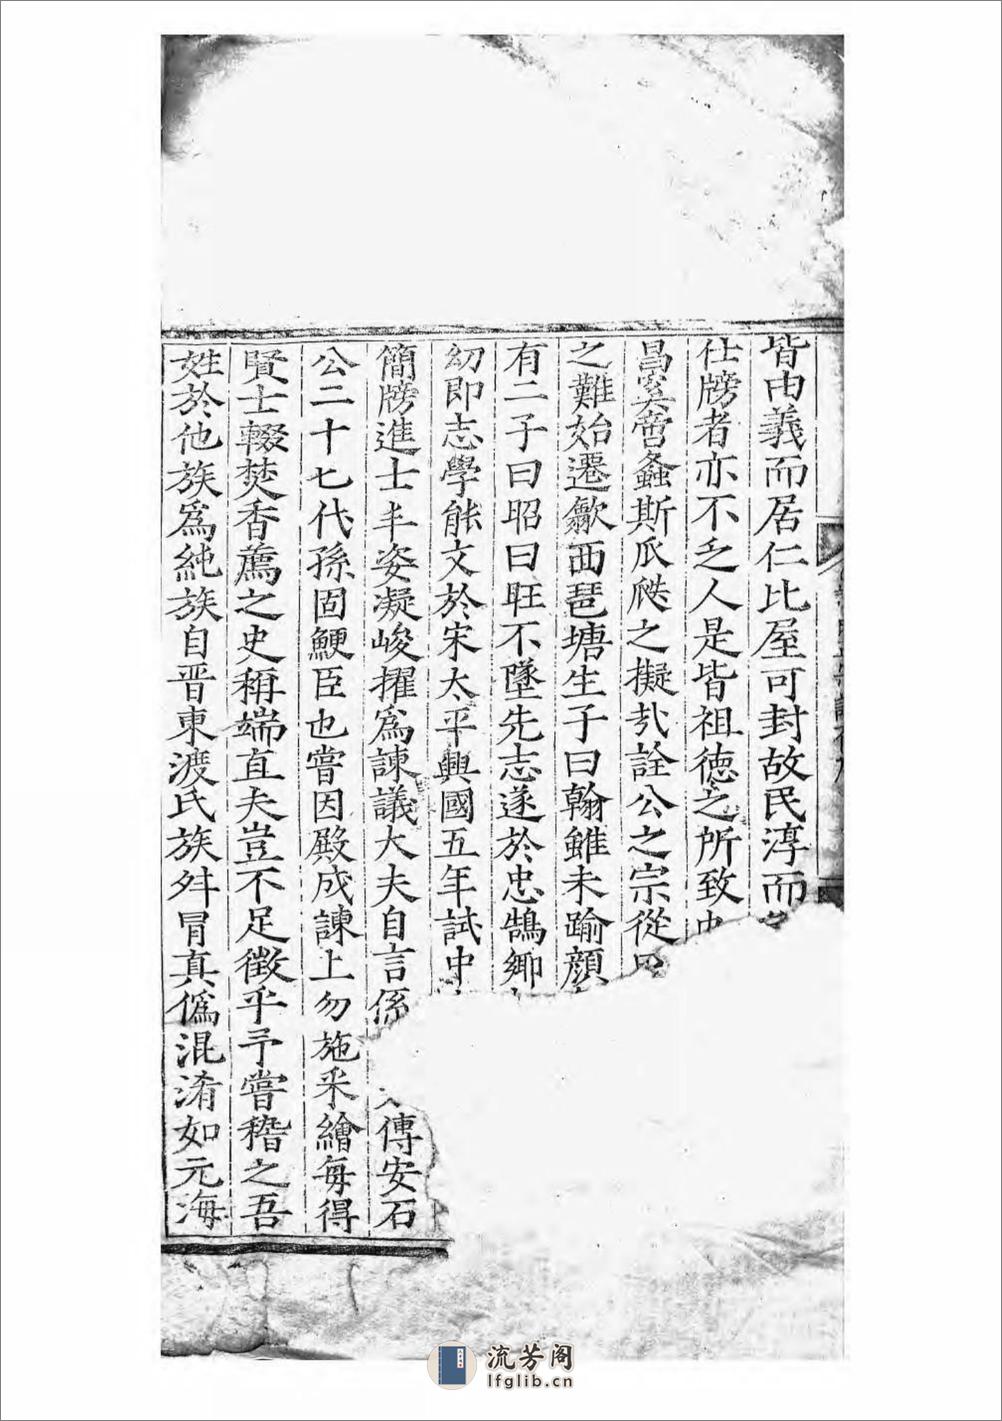 皆由義而居仁比屋可封故民淳而
仕牓者亦不乏人是皆祖徳之所致
昌奚啻螽斯瓜瓞之擬㢤詮公之宗從
之難始遷歙西琵塘生子曰翰雖未踰顔
有二子曰昭曰旺不墜先志遂於忠鵠鄉
幼即志學能文於宋太平興國五年試中
簡牓進士丰姿凝峻擢爲諫議大夫自言係
傳安石
公二十七代孫固鯁臣也嘗因殿成諫上勿施采繪每得
賢士輟焚香薦之史稱端直夫豈不足徵乎予嘗稽之吾
姓於他族爲純族自晋東渡氏族舛冐真僞混淆如元海
流芳阁
lfglib.cn